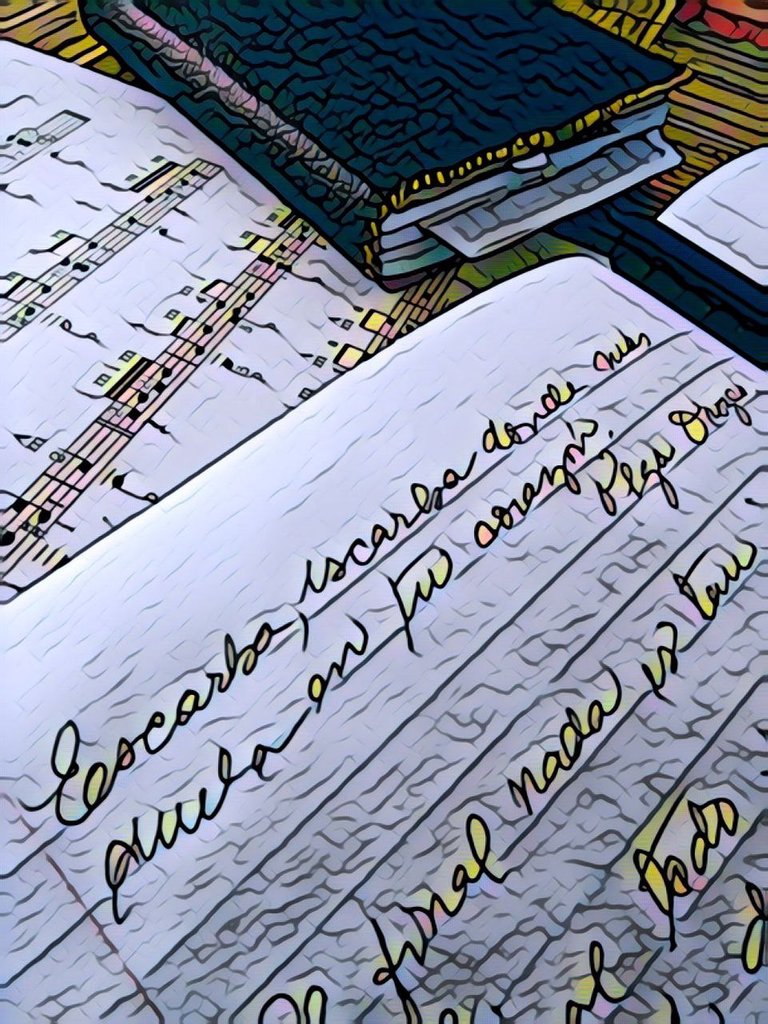 Escarba, escarba donde más
duela en tu corazón.
Olga
final nada es tan
el todo